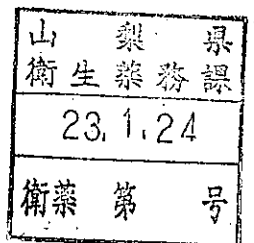 山梨県
衛生薬務課
23.1.24
衛薬 第 号